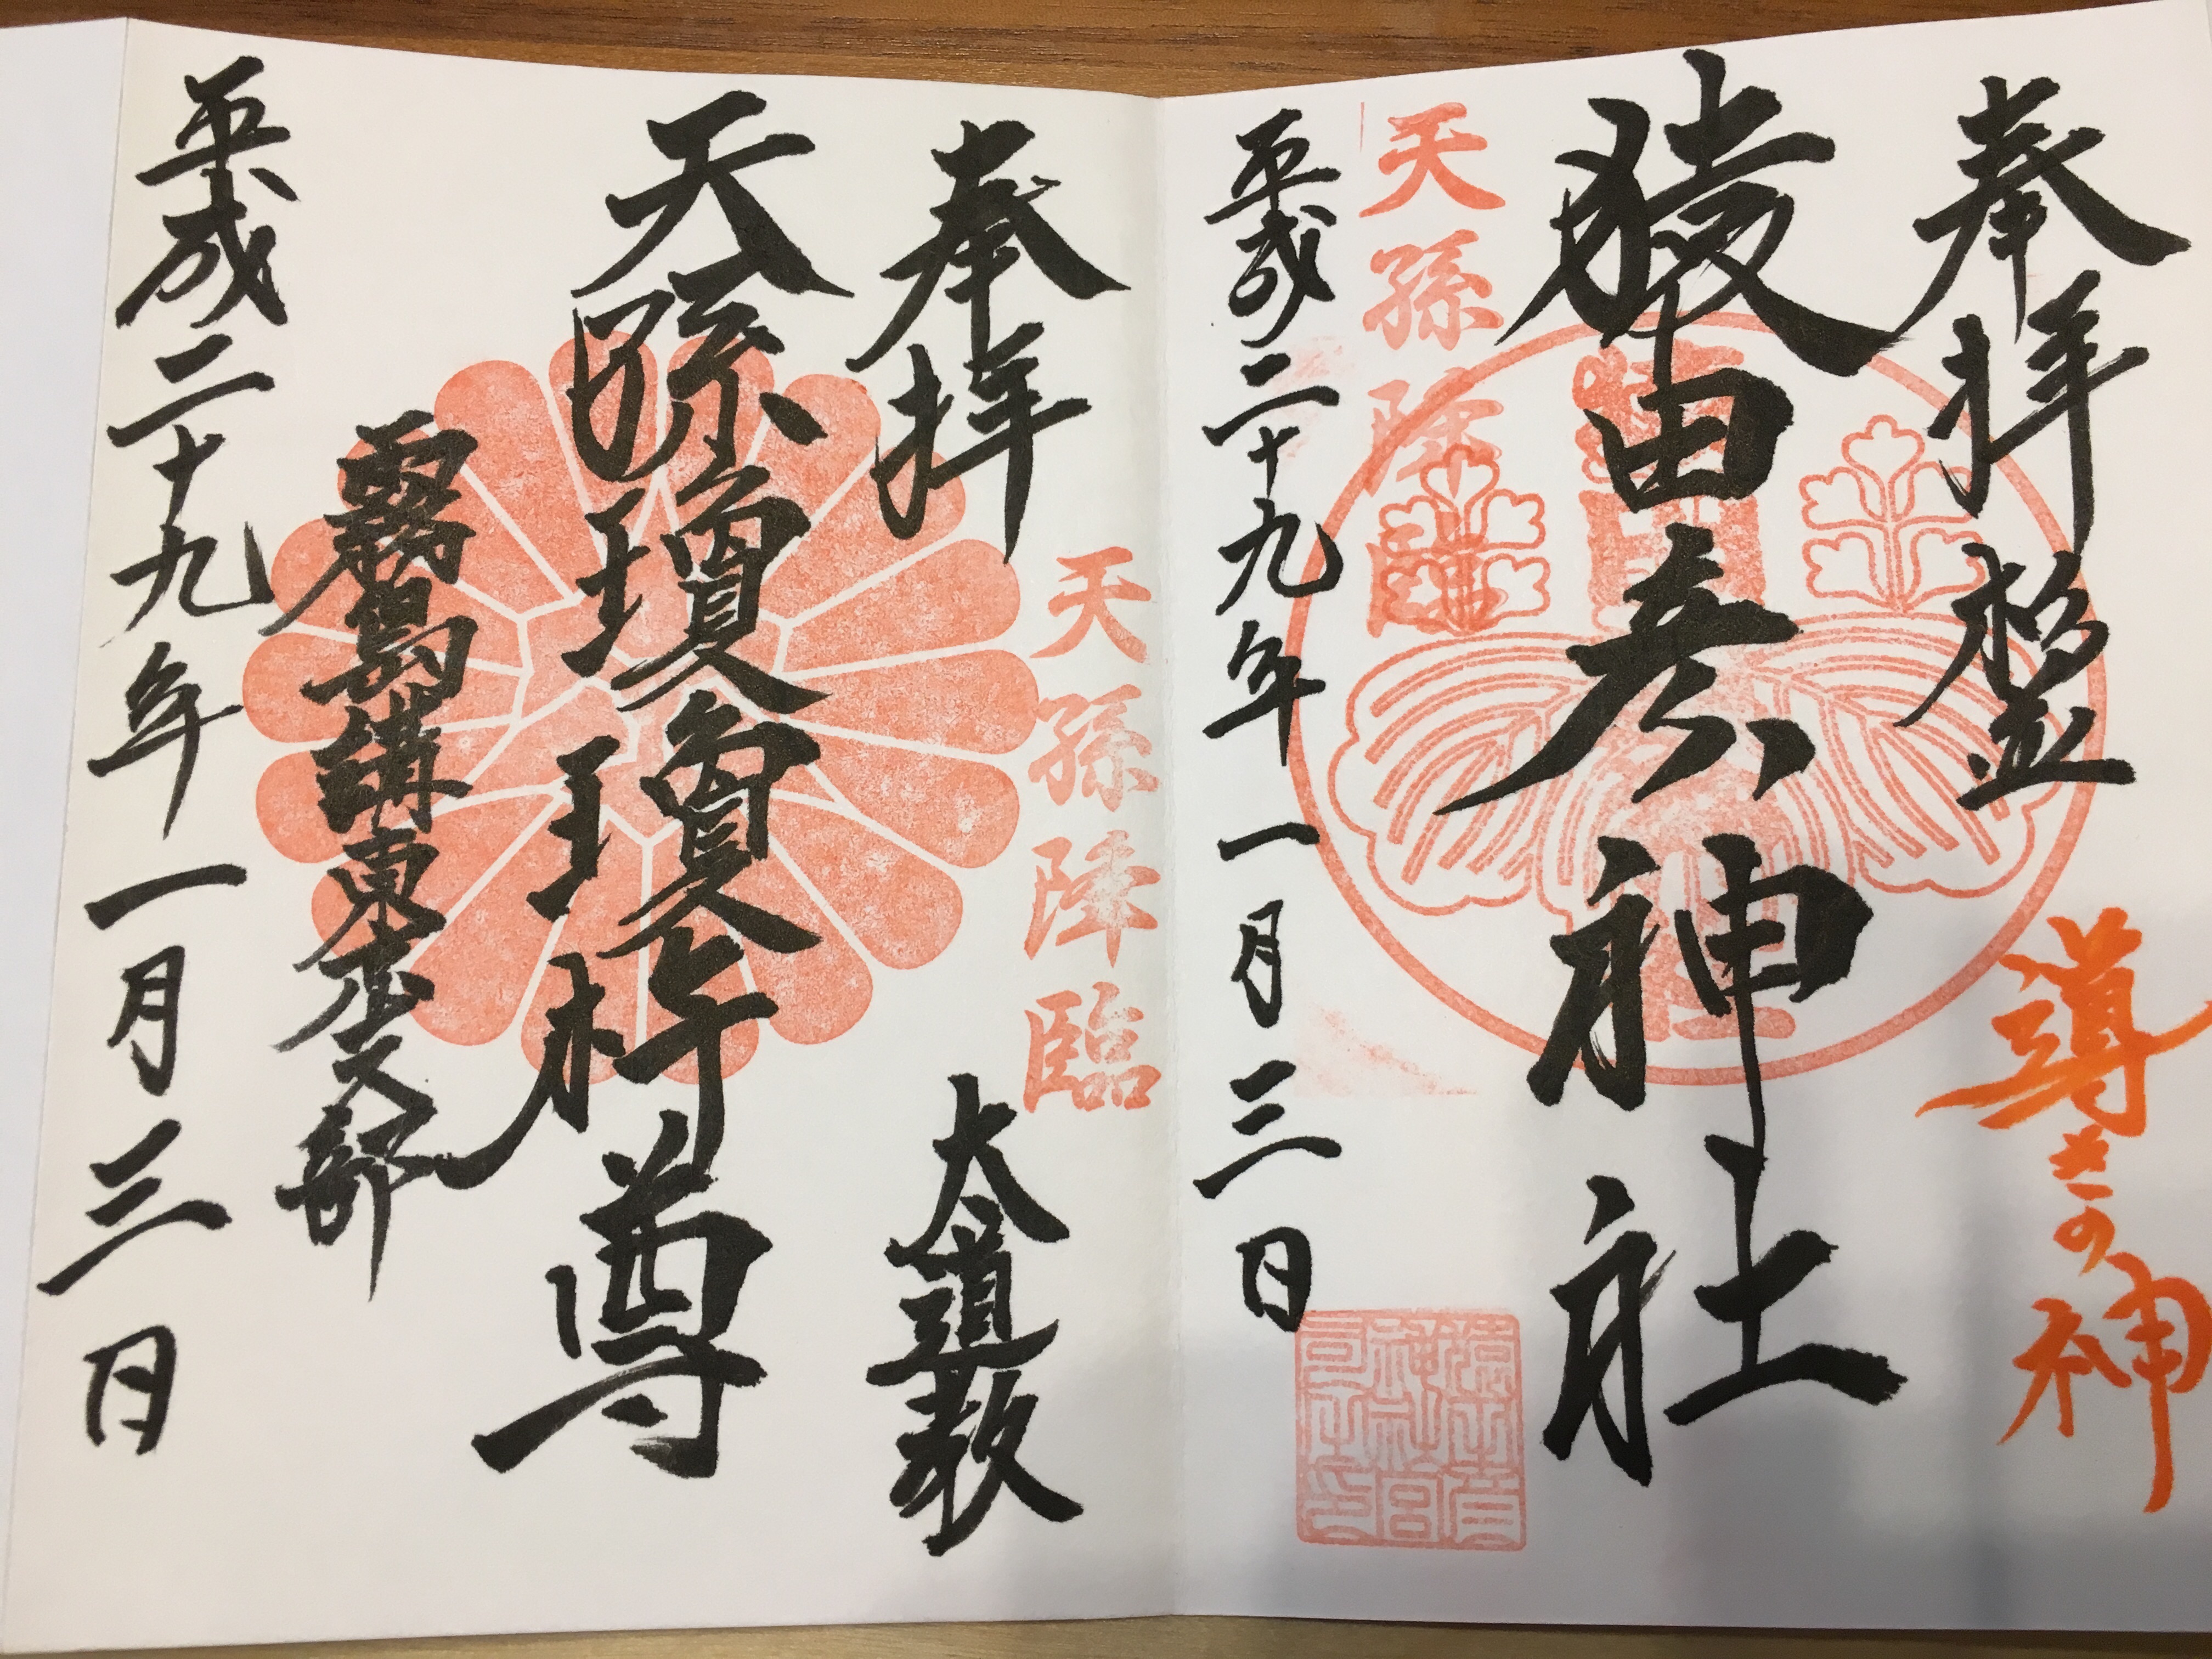 奉拝 杉並
導きの神
猿田彦神社
天孫降臨
平成二十九年一月三日
奉拝
大道教
天孫降臨
天孫瓊瓊杵尊
霧島講東京支部
平成二十九年一月三日